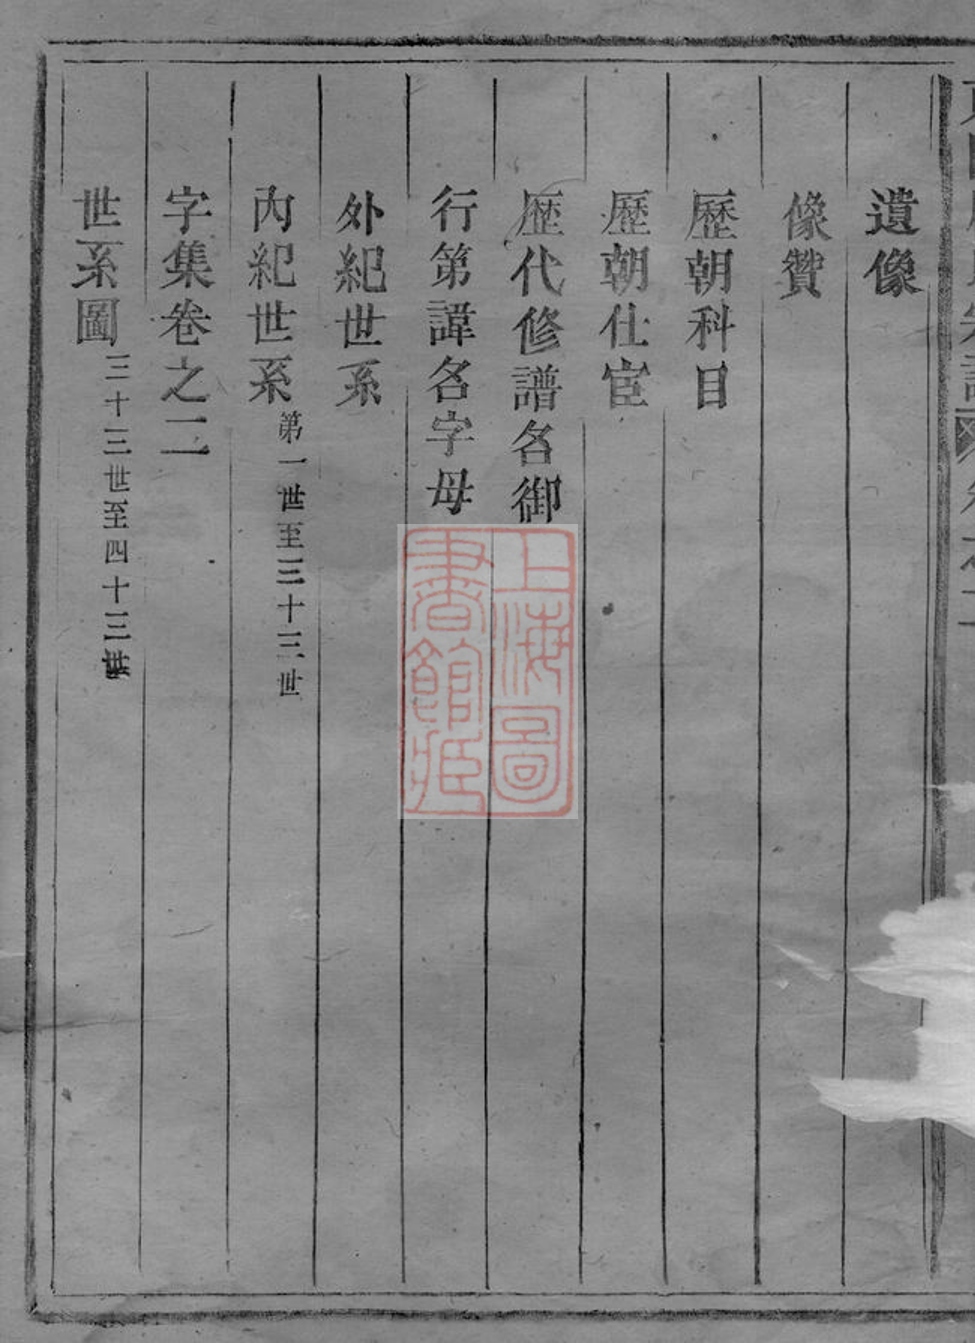 遺像
像贊
歷朝科目
歷朝仕宦
歴代修譜名御
行第諱名字母
外紀世系
內紀世系 第一世至三十三世
字集卷之二
世系圖 三十三世至四十三世
上海圖
書館藏